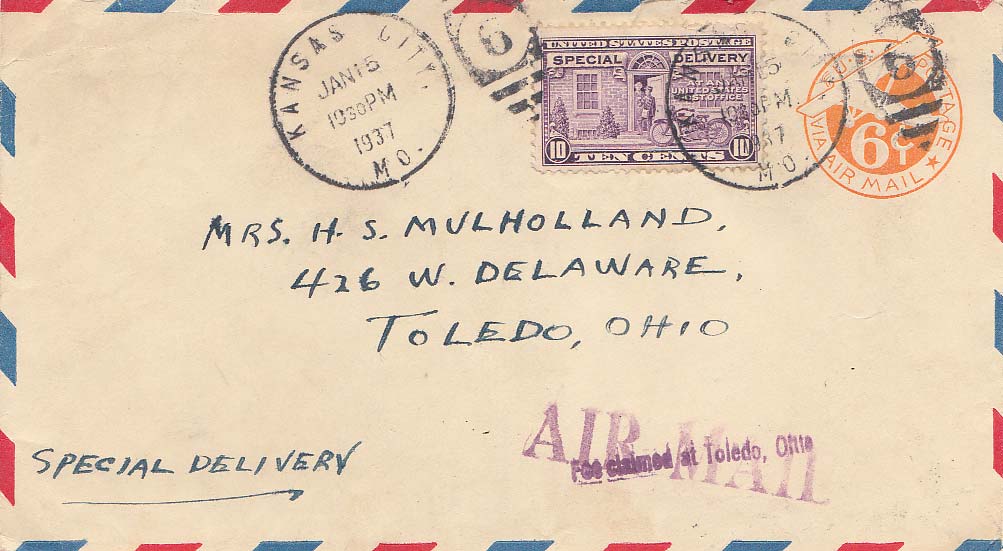 KANSAS CITY,
JAN 15
10 30 PM
1937
MO.
6
UNITED STATES POSTAGE
SPECIAL DELIVERY
UNITED STATES
POST OFFICE
10 TEN CENTS 10
KANSAS CI
15
PM
1937
MO.
6
U.S. POSTAGE
6¢
VIA AIR MAIL
MRS. H. S. MULHOLLAND,
426 W. DELAWARE,
TOLEDO, OHIO
SPECIAL DELIVERY
AIR MAIL
Fee claimed at Toledo, Ohio